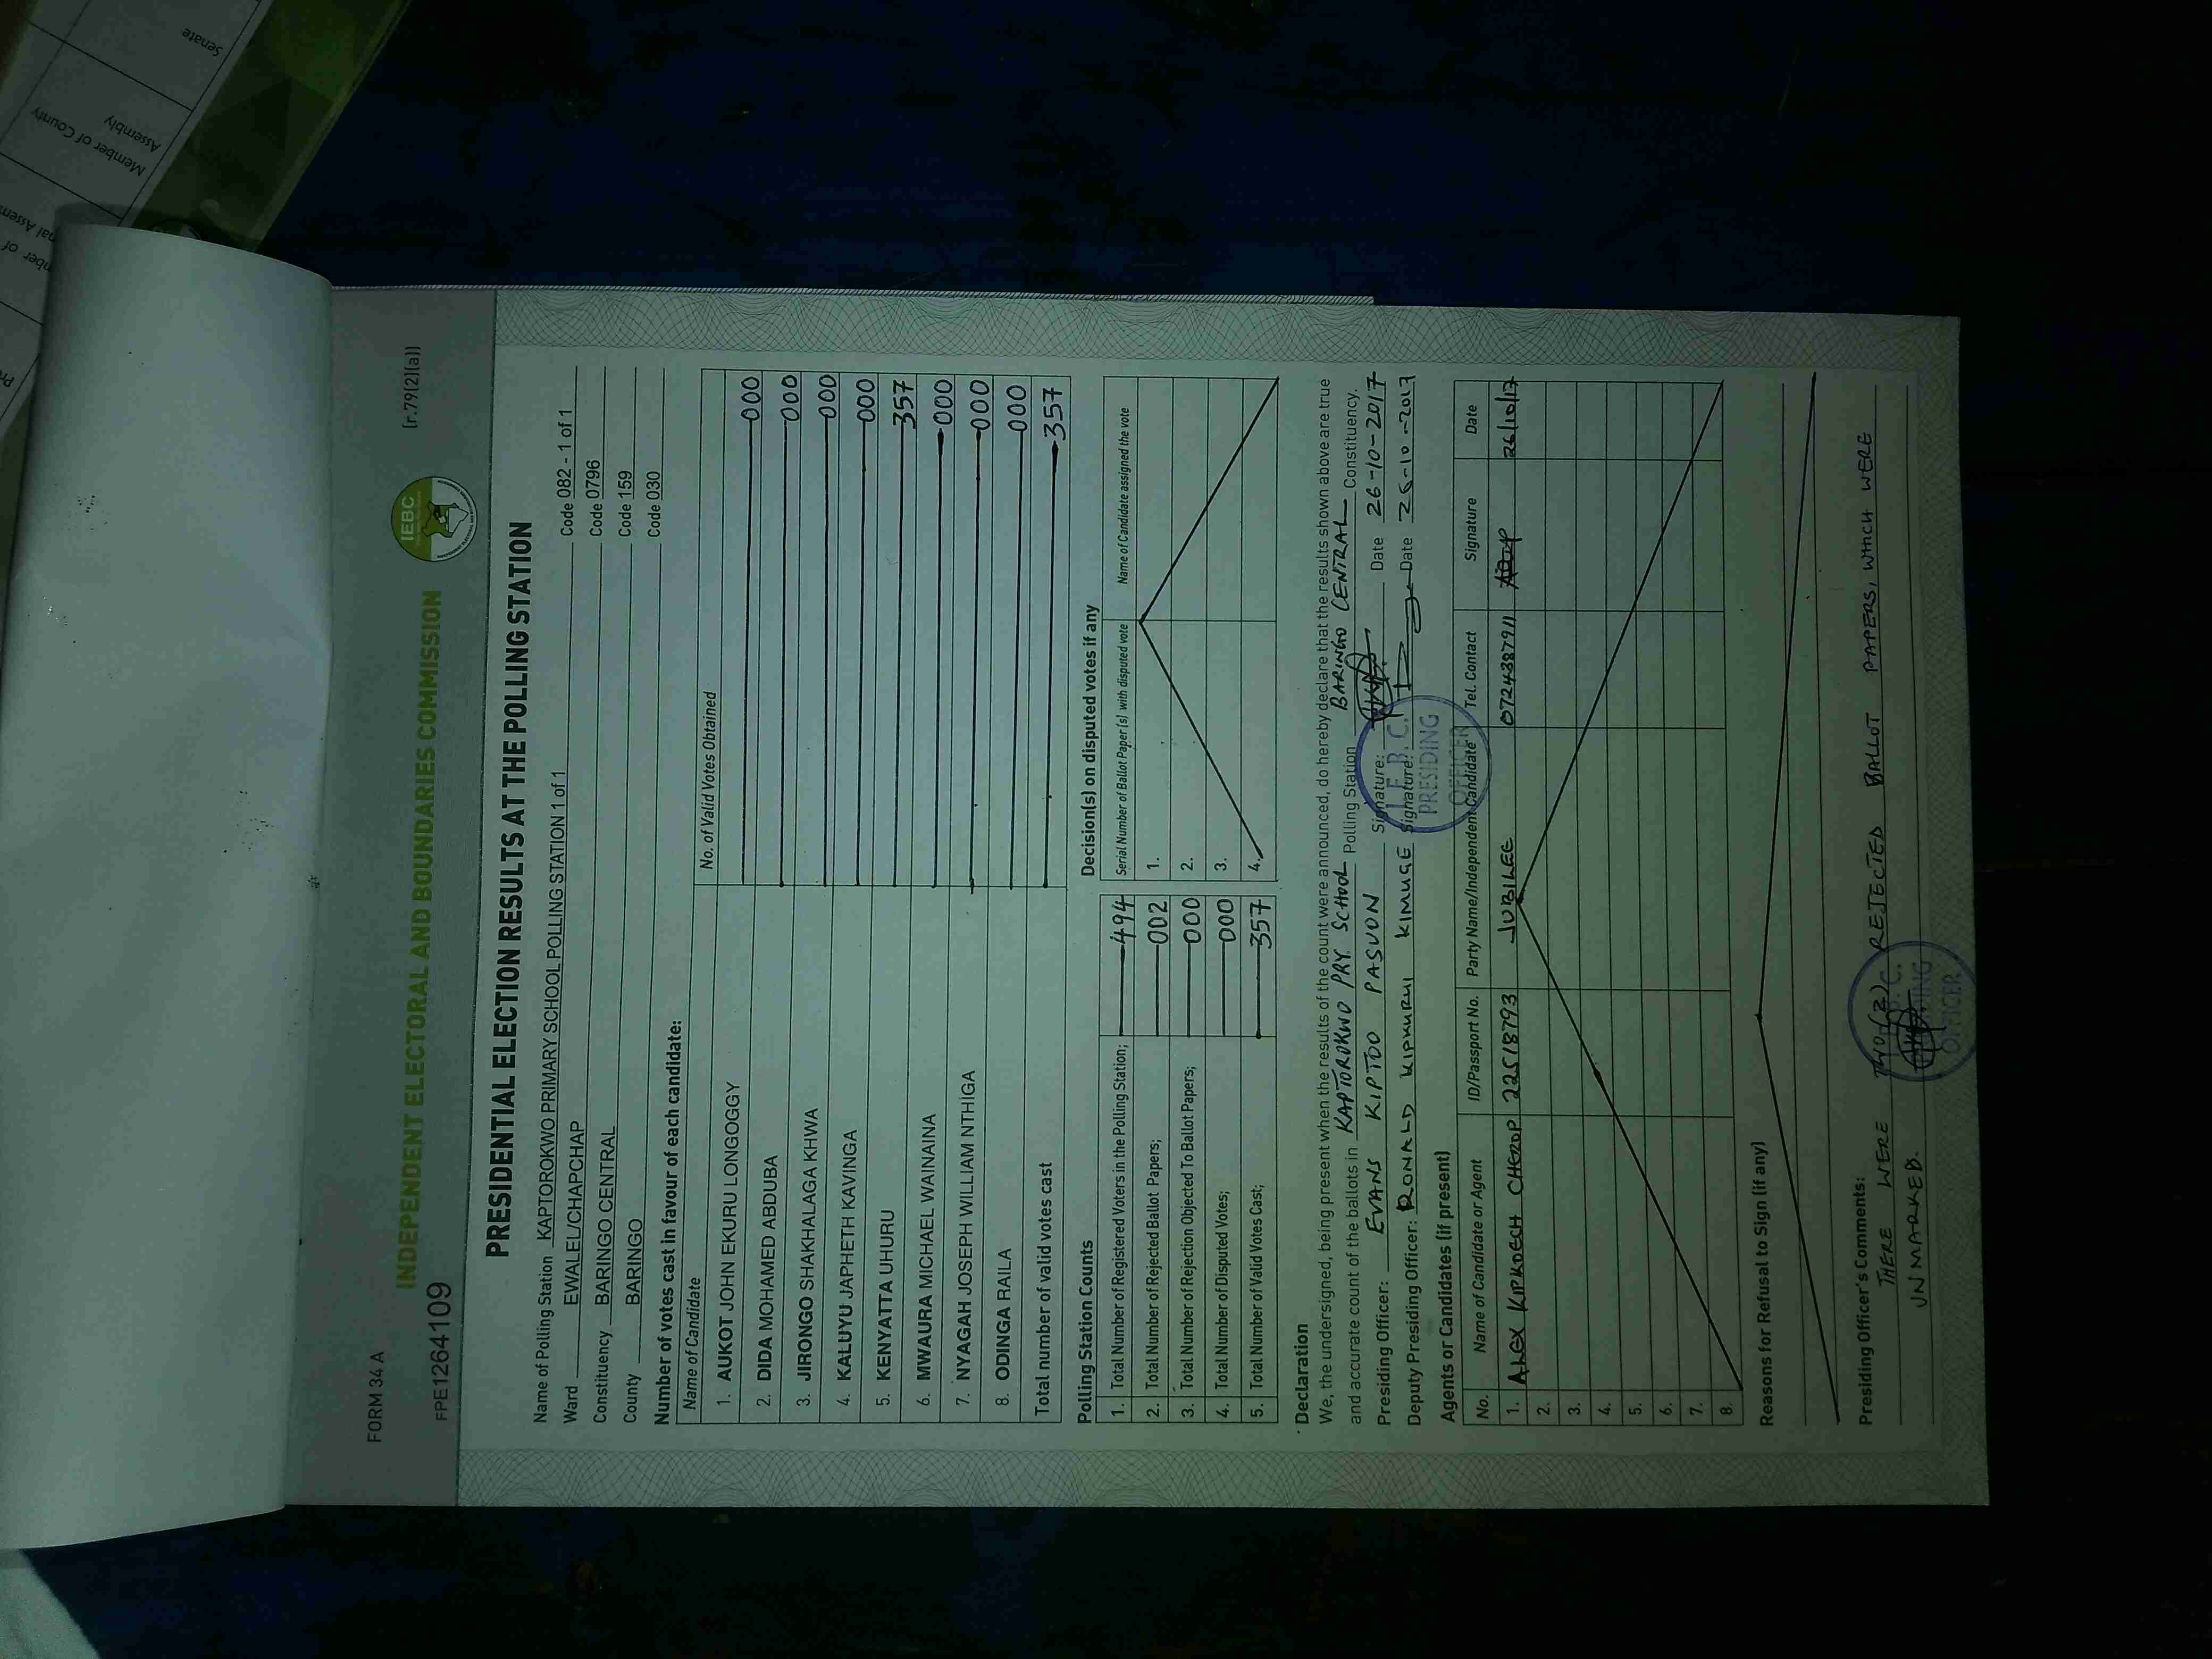 Senate
Member of County
Assembly
FORM 34 A
[r.79(2)(a)]
INDEPENDENT ELECTORAL AND BOUNDARIES COMMISSION
IEBC
FPE1264109
PRESIDENTIAL ELECTION RESULTS AT THE POLLING STATION
Name of Polling Station KAPTOROKWO PRIMARY SCHOOL POLLING STATION 1 of 1 Code 082 - 1 of 1
Ward EWALEL/CHAPCHAP Code 0796
Constituency BARINGO CENTRAL Code 159
County BARINGO Code 030
Number of votes cast in favour of each candidate:
Name of Candidate No. of Valid Votes Obtained
1. AUKOT JOHN EKURU LONGOGGY 000
2. DIDA MOHAMED ABDUBA 000
3. JIRONGO SHAKHALAGA KHWA 000
4. KALUYU JAPHETH KAVINGA 000
5. KENYATTA UHURU 357
6. MWAURA MICHAEL WAINAINA 000
7. NYAGAH JOSEPH WILLIAM NTHIGA 000
8. ODINGA RAILA 000
Total number of valid votes cast 357
Polling Station Counts
1. Total Number of Registered Voters in the Polling Station; 494
2. Total Number of Rejected Ballot Papers; 002
3. Total Number of Rejection Objected To Ballot Papers; 000
4. Total Number of Disputed Votes; 000
5. Total Number of Valid Votes Cast; 357
Decision(s) on disputed votes if any
Serial Number of Ballot Paper(s) with disputed vote Name of Candidate assigned the vote
1.
2.
3.
4.
Declaration
We, the undersigned, being present when the results of the count were announced, do hereby declare that the results shown above are true
and accurate count of the ballots in KAPTOROKWO PRY. SCHOOL Polling Station BARINGO CENTRAL Constituency.
Presiding Officer: EVANS KIPTOO PASUON Signature: Date 26-10-2017
Deputy Presiding Officer: RONALD KIPKURUI KIMUGE Signature: Date 26-10-2017
I.E.B.C.
PRESIDING
OFFICER
Agents or Candidates (if present)
No. Name of Candidate or Agent ID/Passport No. Party Name/Independent Candidate Tel. Contact Signature Date
1. ALEX KIPKOECH CHEROP 22518793 JUBILEE 0724387911 26/10/17
2.
3.
4.
5.
6.
7.
8.
Reasons for Refusal to Sign (if any)
Presiding Officer's Comments:
THERE WERE TWO (2) REJECTED BALLOT PAPERS, WHICH WERE
UNMARKED.
OFFICER